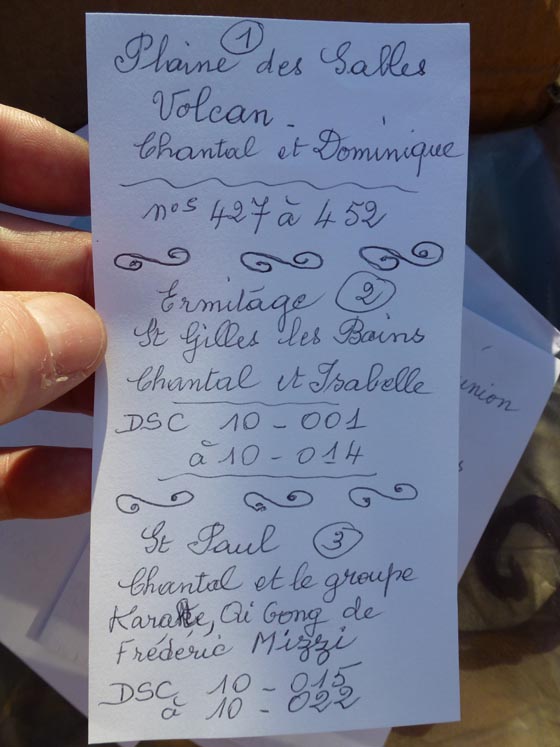 1
Plaine des Sables
Volcan -
Chantal et Dominique
nos 427 à 452
Ermitage 2
St Gilles les Bains
Chantal et Isabelle
DSC 10 - 001
à 10 - 014
St Paul 3
Chantal et le groupe
Karaté, Qi Gong de
Frédéric Mizzi
DSC 10 - 015
à 10 - 022
union